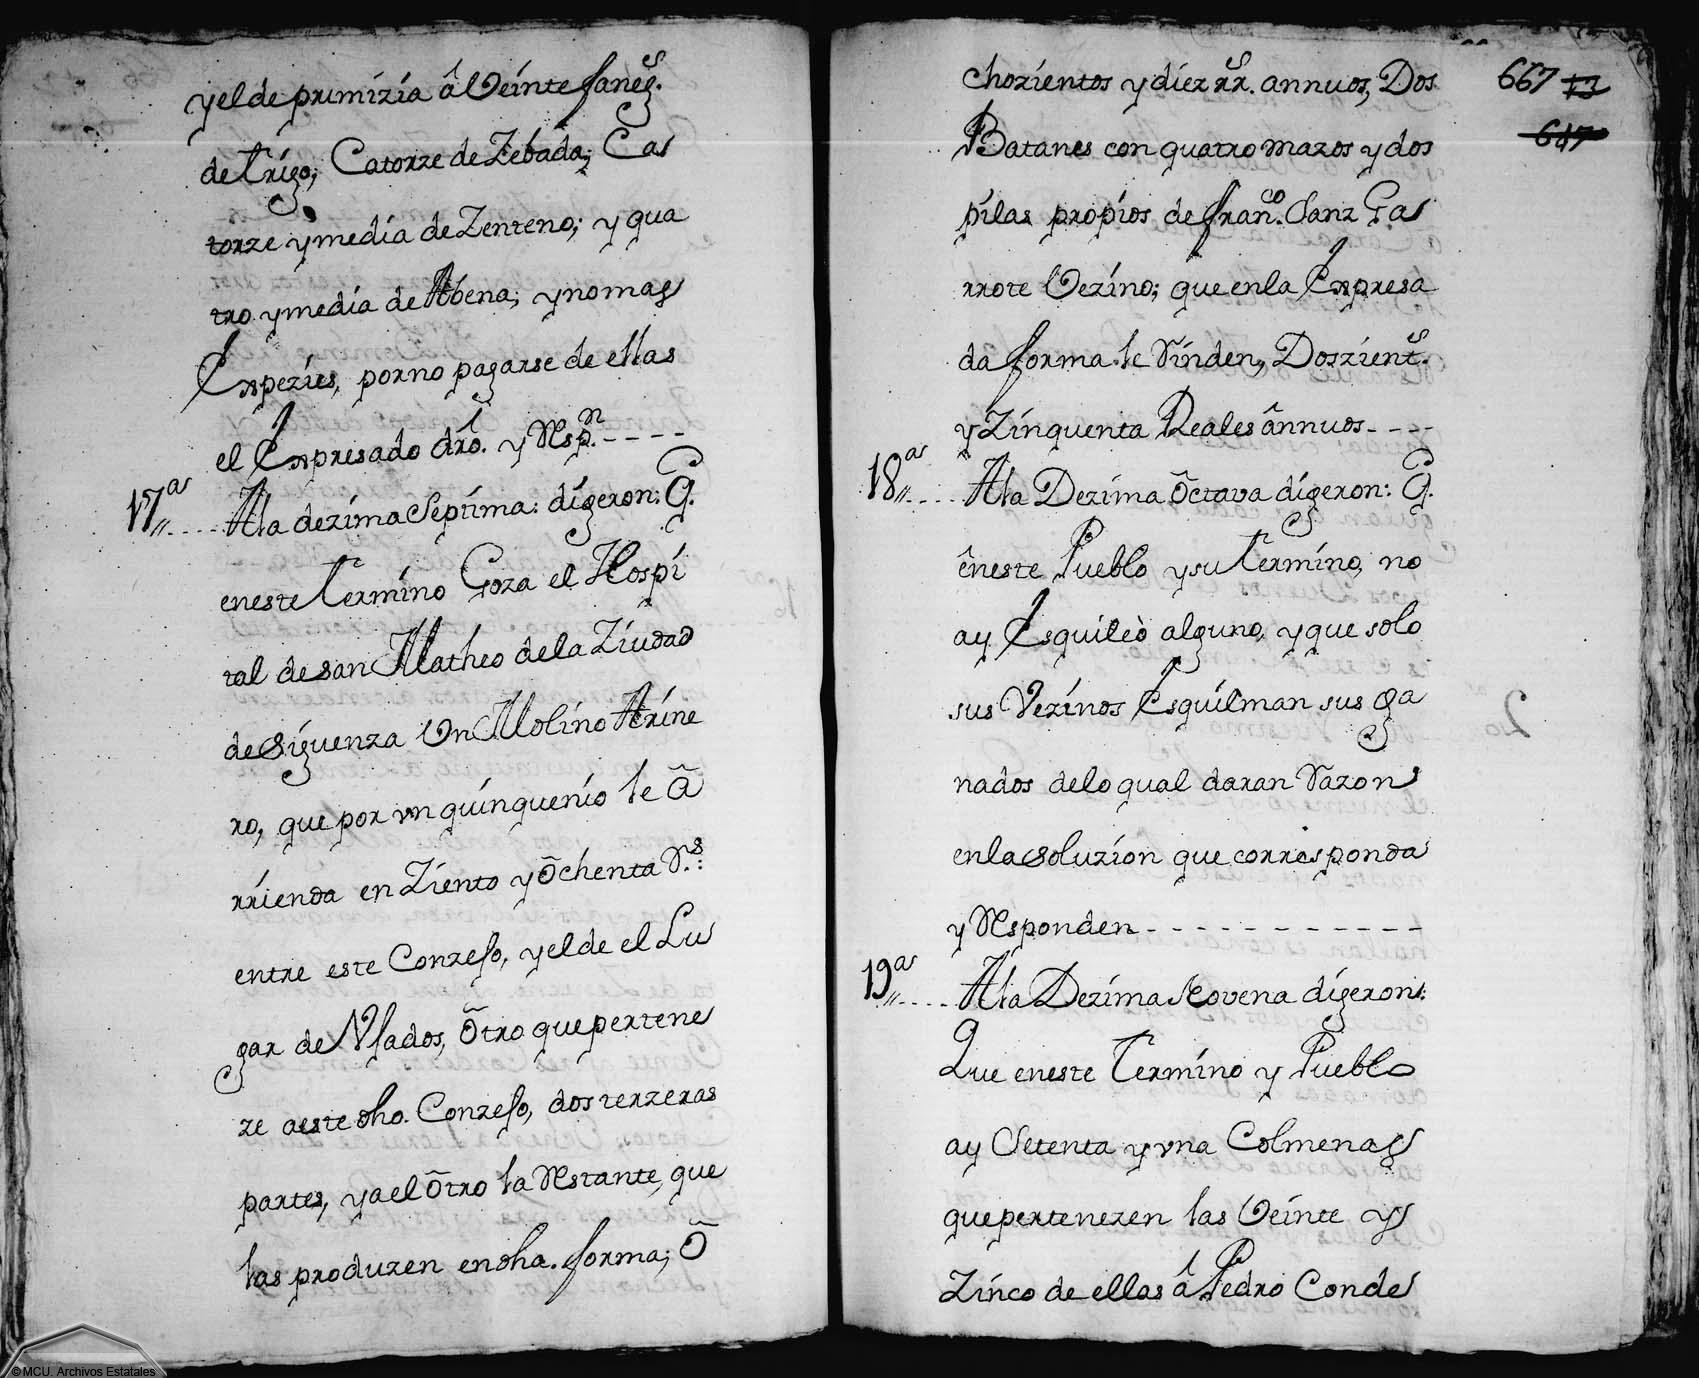 y el de primizia â Veinte faneg.s
de trigo; Catorze de Zebada; Ca
torze y media de Zenteno; y qua
tro y media de Abena; y no mas
Expezies, por no pagarse de ellas
el Expresado dro. y Resp.n
17as Ala dezima Septima: digeron: Q.
eneste termino Goza el Hospi
tal de san Matheo dela Ziudad
de Siguenza Un Molino Arine
ro, que por vn quinquenio le â
rrienda en Ziento y õchenta Rs.
entre este Conzejo, y el de el Lu
gar de Vjados, õtro que pertene
ze aeste dho. Conzejo, dos terzeras
partes, y a el õtro la Restante, que
las produzen en dha. forma; õ
chozientos y diez rr.s annuos, Dos
Batanes con quatro mazos y dos
pilas propios de fran.co Sanz Ga
rrote Vezino; que enla Expresa
da forma le Rinden, Doszient.s
y Zinquenta Reales ânnuos
18as Ala Dezima õctava digeron: Q.
êneste Pueblo y su termino, no
ay Esquileò alguno, y que solo
sus Vezinos Esquilman sus ga
nados delo qual daran Razon
enla soluzion que corresponda
y Responden
19as Ala Dezima Novena digeron:
Que eneste termino y Pueblo
ay Setenta y vna Colmenas
que pertenezen las Veinte y
Zinco de ellas â Pedro Conde
667 13
647
© MCU. Archivos Estatales